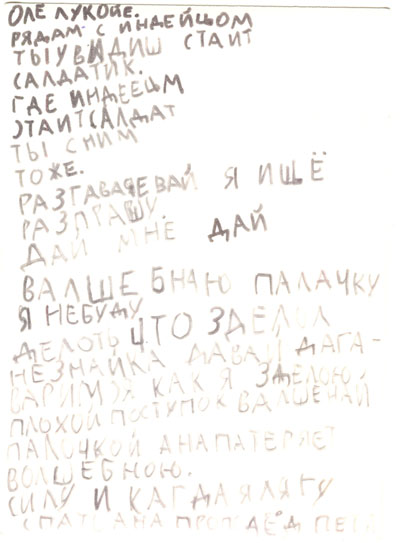 ОЛЕ ЛУКОЙЕ.
РЯДАМ С ИНДЕЙЦОМ
ТЫ УВИДИШ СТАИТ
САЛДАТИК.
ГДЕ ИНДЕЕЦМ
СТАИТ САЛДАТ
ТЫ СНИМ
ТОЖЕ.
РАЗГАВАРЕВАЙ Я ИЩЁ
РАЗ ПРАШУ
ДАЙ МНЕ ДАЙ
ВАЛШЕБНАЮ ПАЛАЧКУ
Я НЕБУДУ
ДЕЛОТЬ ЧТО ЗДЕЛОЛ
НЕЗНАЙКА ДАВАЙ ДАГА-
ВАРИМСЯ КАК Я ЗДЕЛОЮ
ПЛОХОЙ ПОСТУПОК ВАЛШЕБНАЙ
ПАЛОЧКОЙ АНА ПАТЕРЯЕТ
ВОЛШЕБНОЮ.
СИЛУ И КАГДА Я ЛЯГУ
СПАТЬ АНА